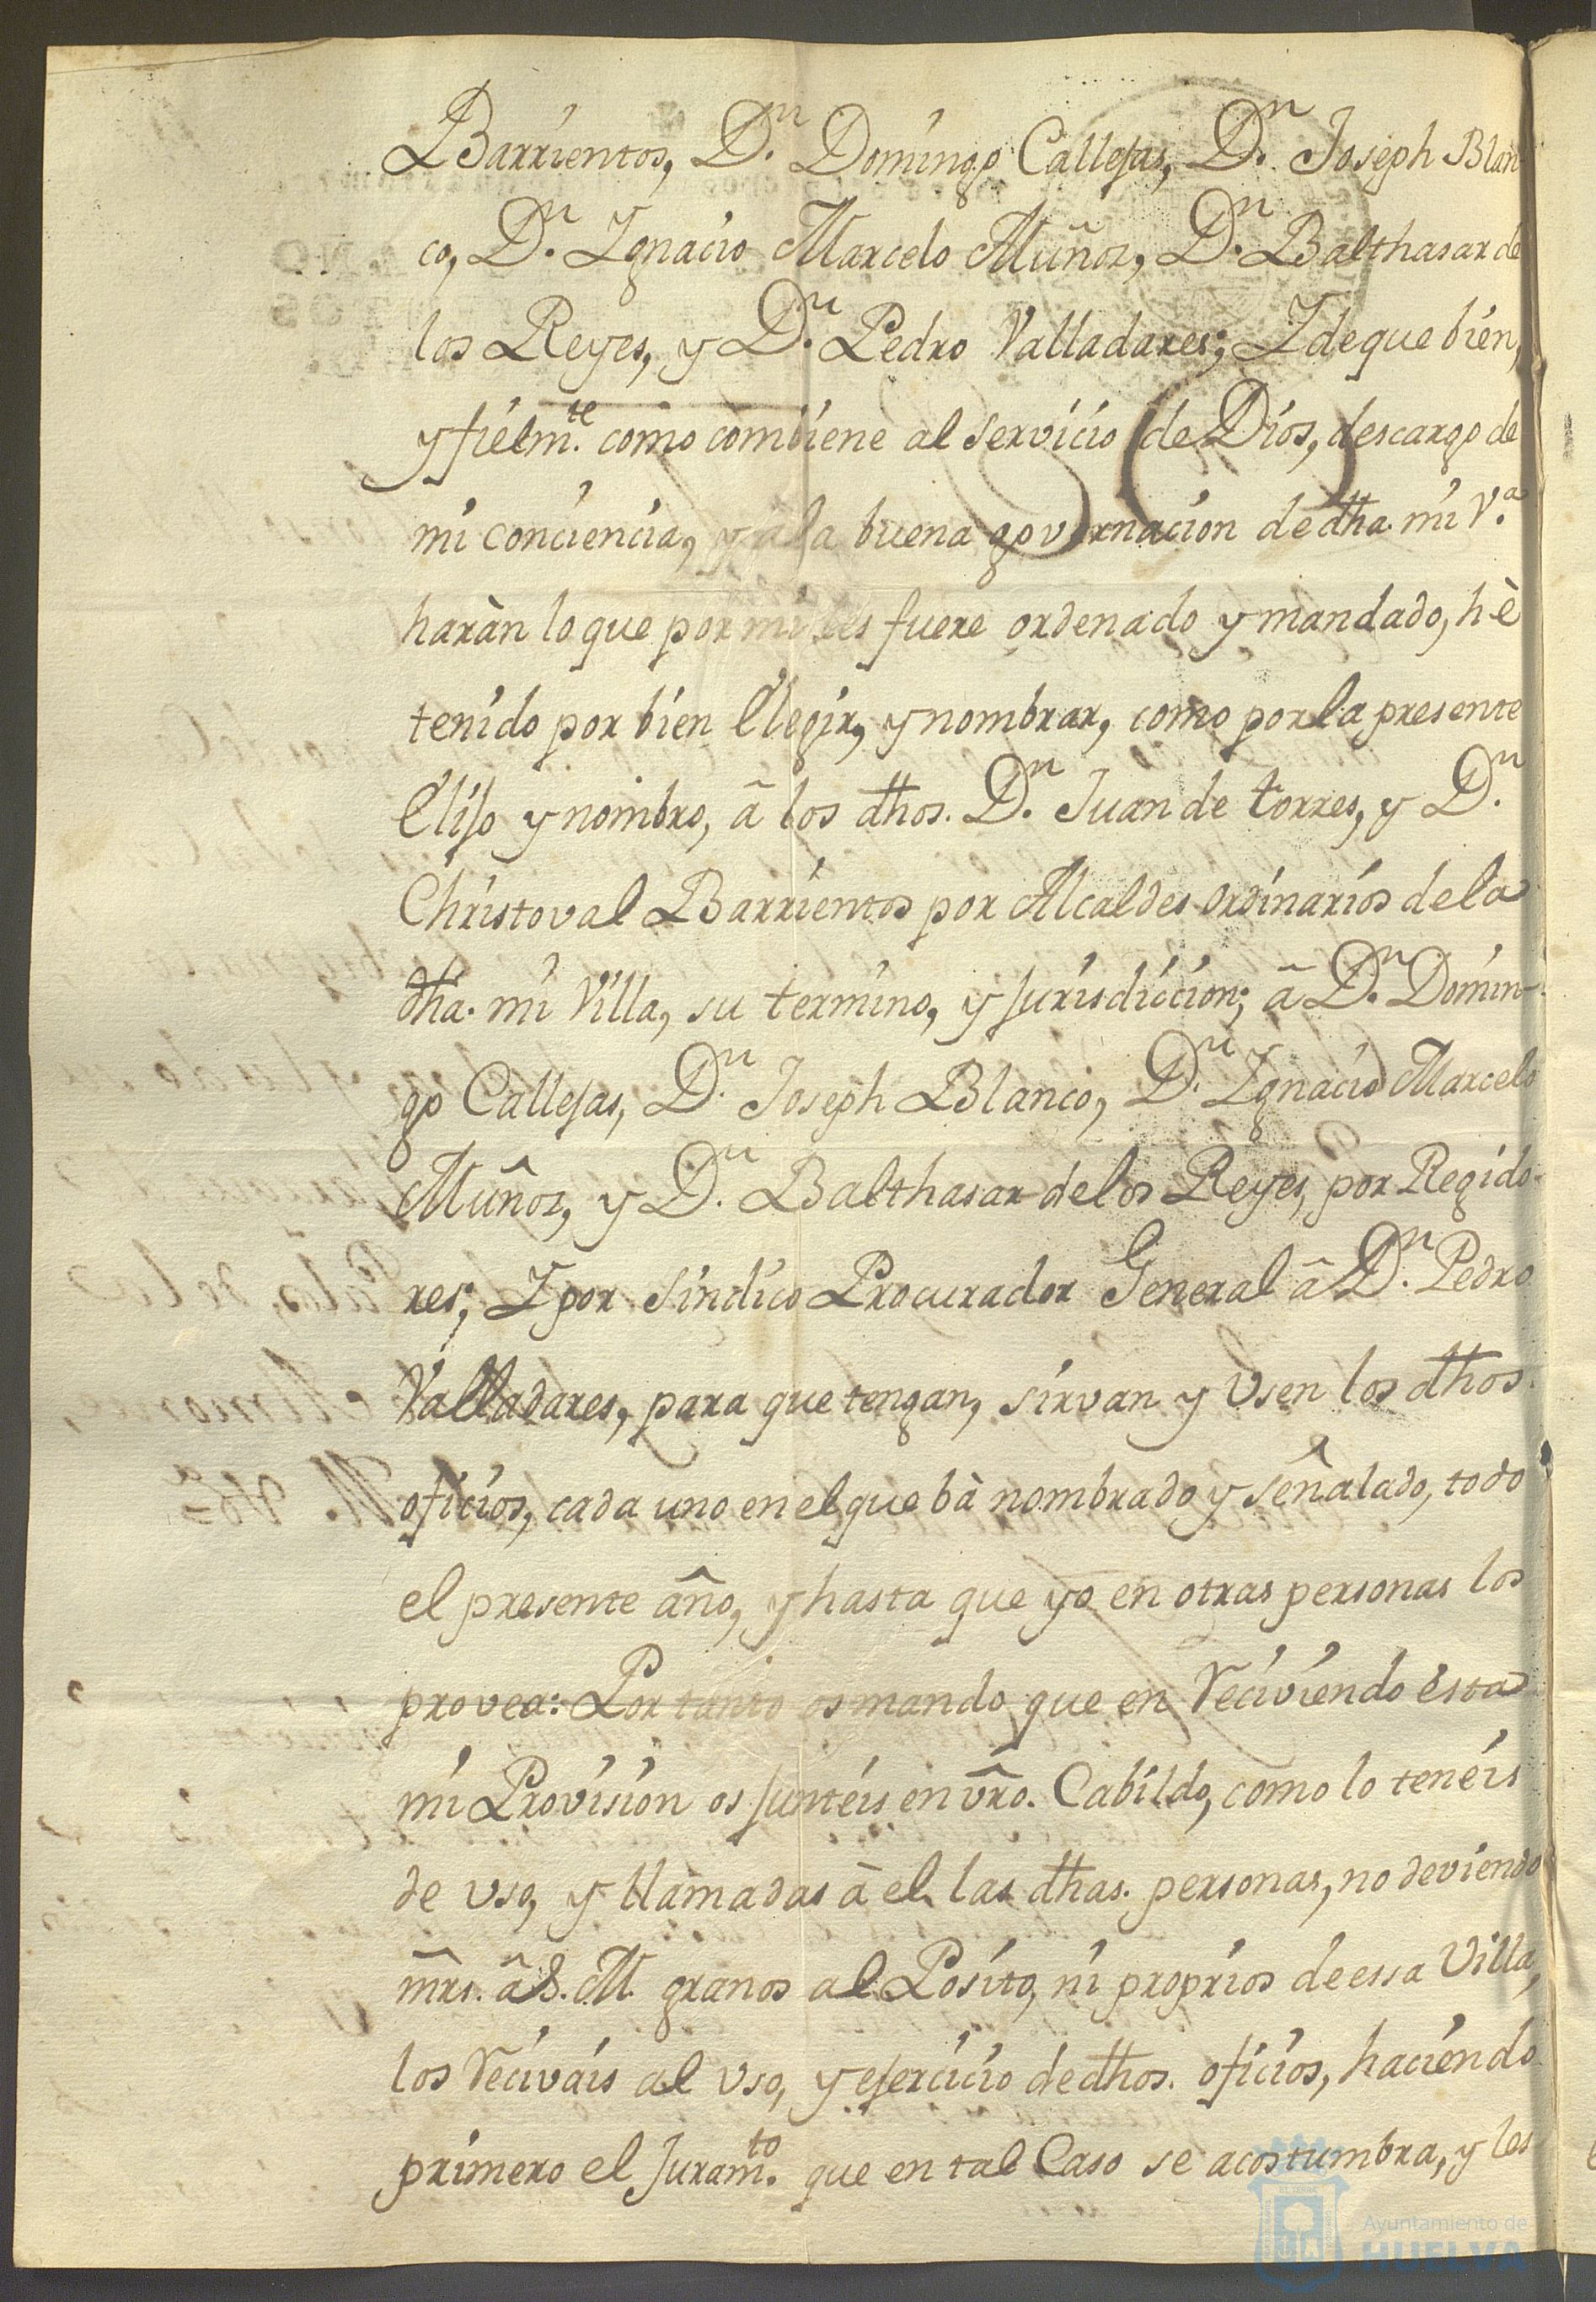 Barrientos, D.ⁿ Domingo Callejas, D.ⁿ Joseph Blan
co, D.ⁿ Ygnacio Marcelo Muñoz, D.ⁿ Balthasar de
los Reyes, y D.ⁿ Pedro Valladares; Y de que bien,
y fielm.ᵗᵉ como combiene al servicio de Dios, descargo de
mi conciencia, y â la buena governacion de dha. mi V.ª
haràn lo que por mi les fuere ordenado y mandado, hè
tenido por bien Elegir, y nombrar, como por la presente
Elijo y nombro, â los dhos. D.ⁿ Juan de torres, y D.ⁿ
Christoval Barrientos por Alcaldes ordinarios de la
dha. mi Villa, su termino, y jurisdiccion; â D.ⁿ Domin-
go Callejas, D.ⁿ Joseph Blanco, D.ⁿ Ygnacio Marcelo
Muñoz, y D.ⁿ Balthasar de los Reyes, por Regido-
res; Y por Sindico Procurador General â D.ⁿ Pedro
Valladares, para que tengan, sirvan y Vsen los dhos.
oficios, cada uno en el que bà nombrado y señalado, todo
el presente año, y hasta que yo en otras personas los
provea: Por tanto os mando que en reciviendo esta
mi Provision os junteis en vr̃o. Cabildo, como lo teneis
de vso, y llamadas â el las dhas. personas, no deviendo
mr̃s. â S. M. granos al Posito, ni proprios de essa Villa,
los recivais al vso, y ejercicio de dhos. oficios, haciendo
primero el juram.ᵗᵒ que en tal Caso se acostumbra, y les
Ayuntamiento de
HUELVA